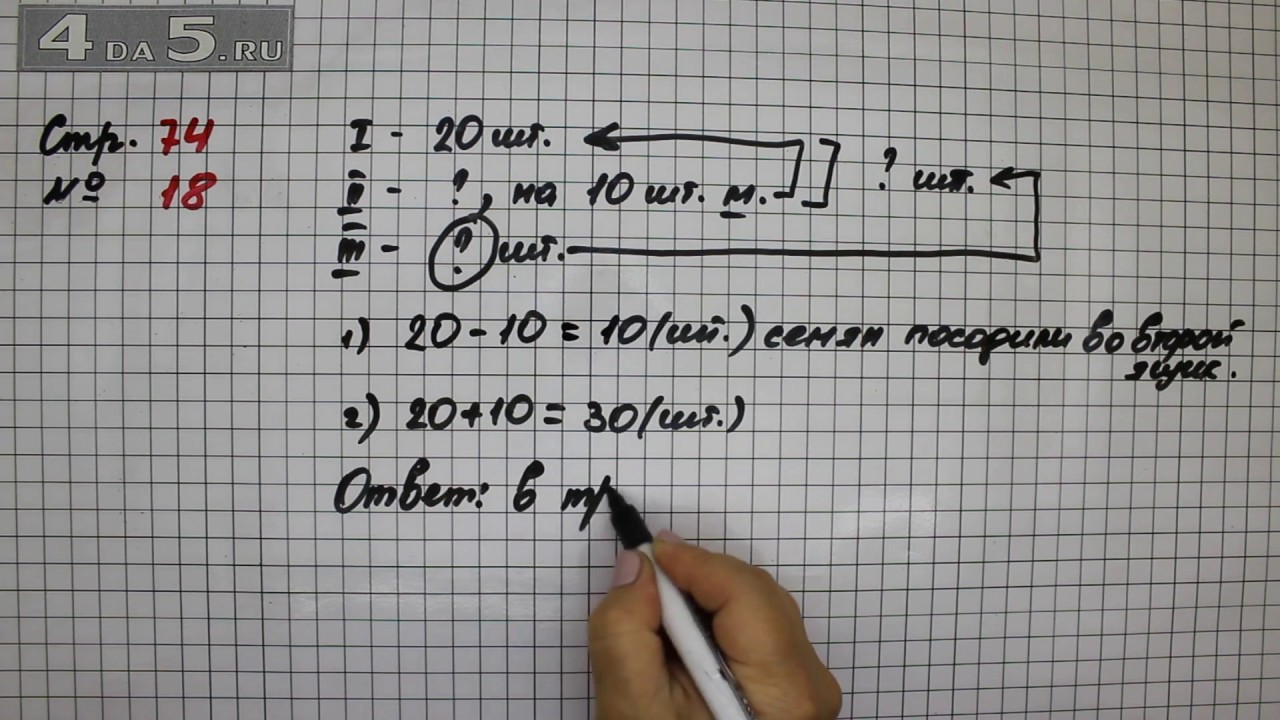 4 DA 5.RU
Стр. 74
№ 18
I - 20 шт.
II - ?, на 10 шт. м. ? шт.
III - ? шт.
1) 20-10=10(шт.) семян посадили во второй
ящик.
2) 20+10=30(шт.)
Ответ: в тр